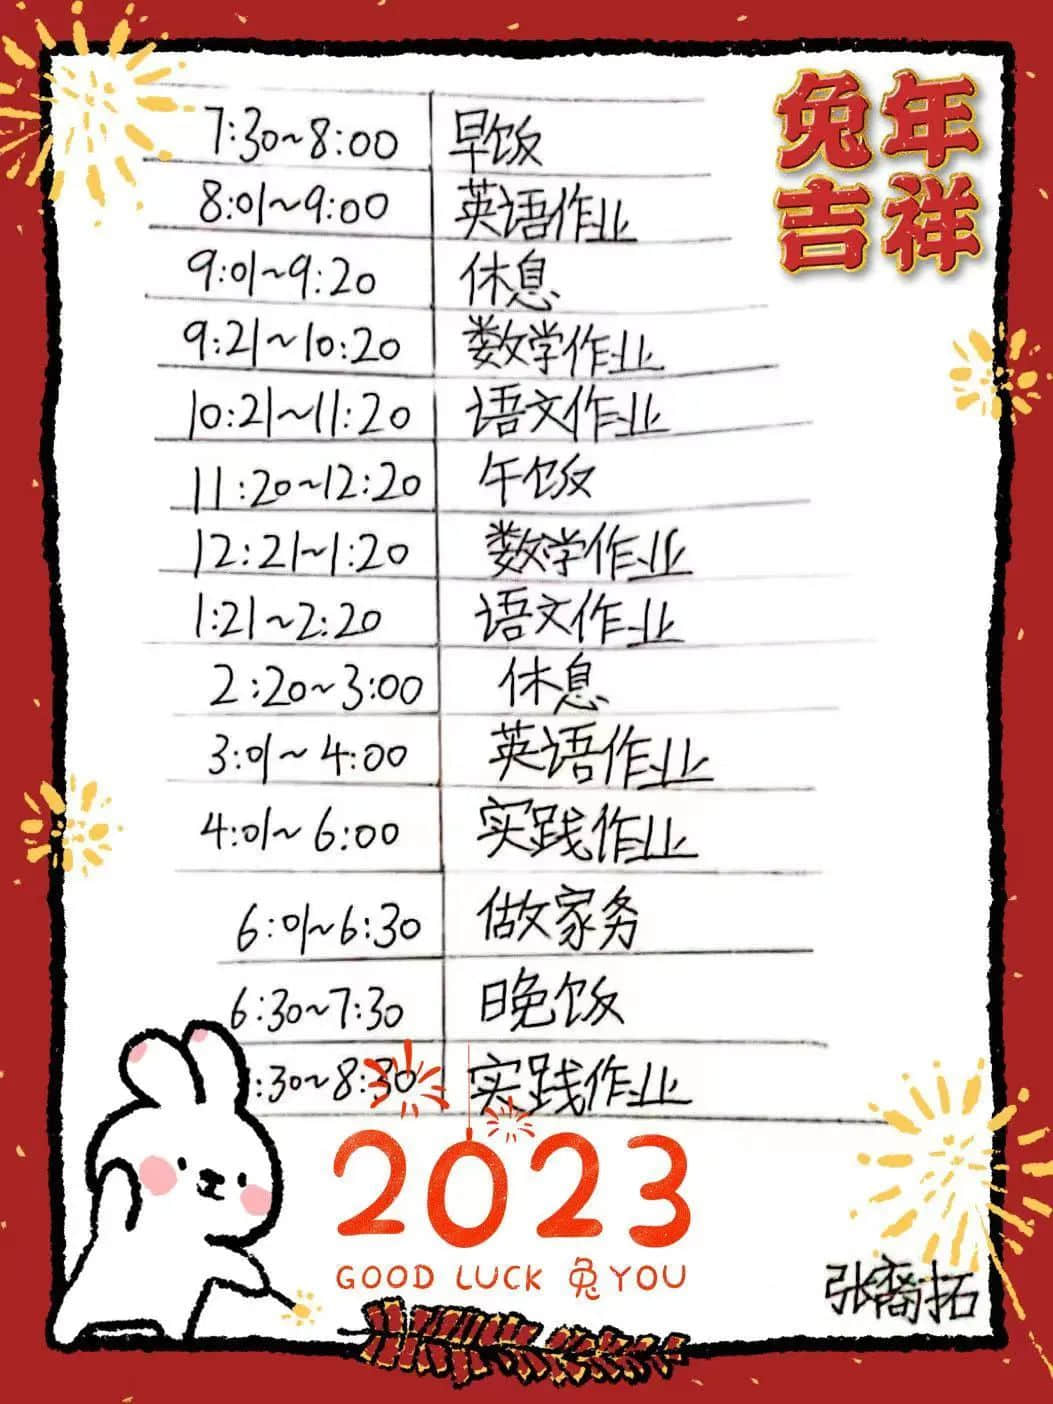 兔年
吉祥
7:30~8:00 早饭
8:01~9:00 英语作业
9:01~9:20 休息
9:21~10:20 数学作业
10:21~11:20 语文作业
11:20~12:20 午饭
12:21~1:20 数学作业
1:21~2:20 语文作业
2:20~3:00 休息
3:01~4:00 英语作业
4:01~6:00 实践作业
6:01~6:30 做家务
6:30~7:30 晚饭
:30~8:30 实践作业
2023
GOOD LUCK 兔YOU
张裔拓